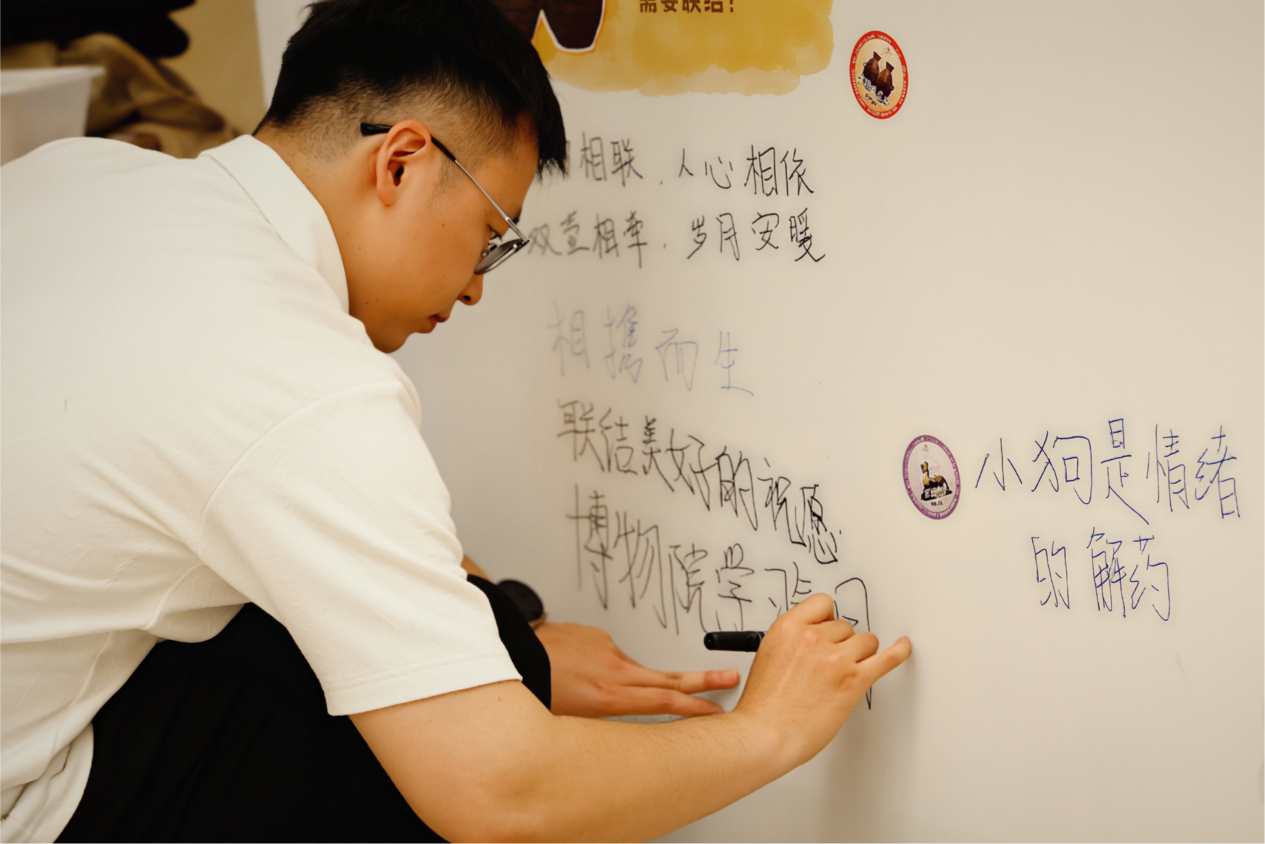 需要联结？
相联，人心相依
双壹相牵，岁月安暖
相携而生
联结美好的祝愿
博物院学习
小狗是情绪
的解药